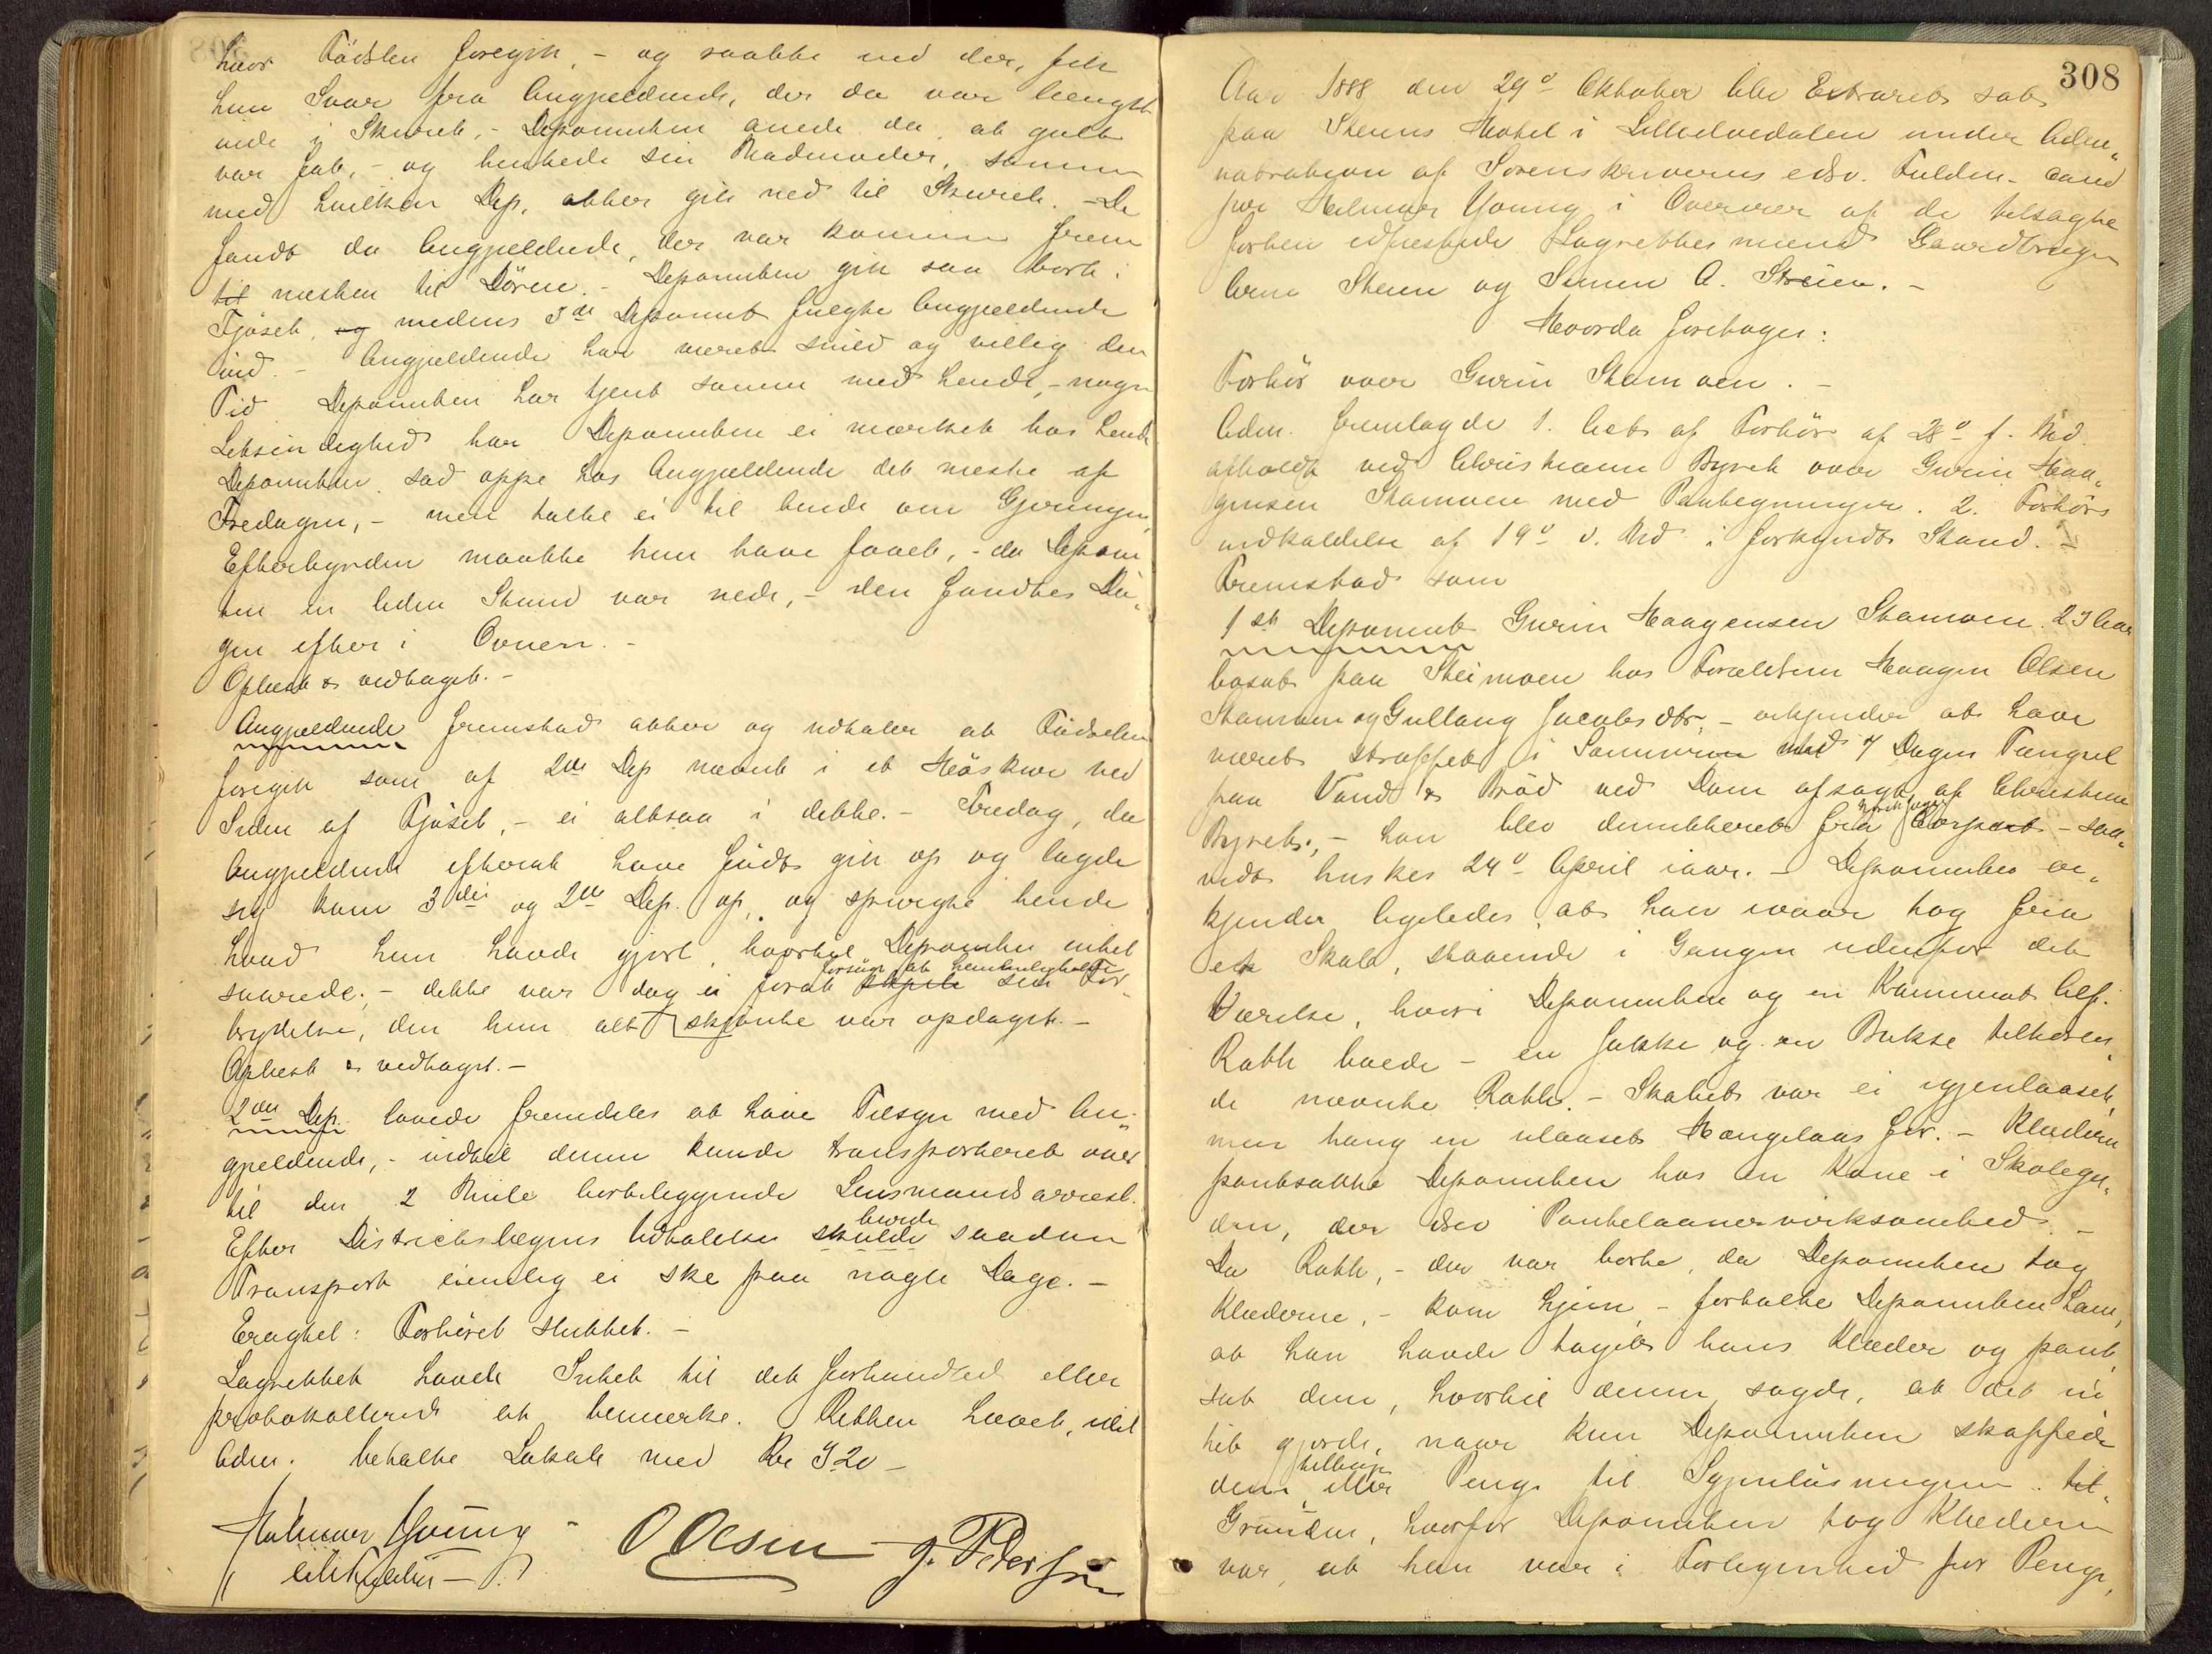 hvor Födslen foregik, - og raabte ned der, fik
hun Svar fra Angjældende, der da var længst
inde i Skuret, - Deponenten anede da, at galt
var fat, - og hentede sin Madmoder, sammen
med hvilken Dep. atter gik ned til Skuret. - De
fandt da Angjældende, der var kommen frem
til næsten til Dören. - Deponenten gik saa bort i
Fjöset, og medens 3die Deponent fulgte Angjældende
ind. - Angjældende har været snild og villig den
Tid Deponenten har tjent sammen med hende, - nogen
Letsindighed har Deponenten ei mærket hos hende
Deponenten sad oppe hos Angjældende det meste af
Fredagen, - men talte ei til hende om Gjerningen,
Efterbyrden maatte hun have faaet, - da Depon
ten en liden Stund var nede, - den fandtes Da„
gen efter i Ovnen. -
Oplæst & vedtaget. -
Angjældende fremstod atter og udtaler at Födselen
foregik som af 2den Dep nævnt i et Höskur ved
Siden af Fjöset, - ei altsaa i dette. - Fredag, da
Angjældende efterat have födt gik op og lagde
sig kom 3die og 2den Dep. op, og spurgte hende
hvad hun havde gjort, hvortil Deponenten intet
svarede, - dette var dog ei forat skjule forsøge at hemmeligholde sin For„
brydelse, den hun alt skjönte var opdaget. -
Oplæst & vedtaget. -
2den Dep. lovede fremdeles at have Tilsyn med An„
gjældende, - indtil denne kunde transporteret over
til den 2 Mile bortliggende Lensmandsarrest.
Efter Districtslægens Udtalelse skulde burde saadan
Transport eiendlig ei ske paa nogle Dage. -
Eragtet: Forhöret sluttet. -
Lagrettet havde Intet til det forhandled eller
protokollerede at bemærke. Retten hævet, idet
Adm. betalte Lokale med Kr 3 20 -
Halmar Young -
O Olsen - J. Pedersen
308
Aar 1888 den 29de Oktober blev Extraret sat
paa Steens Hotel i Lilleelvedalen under Admi„
nistration af Sorenskriverens edsv. Fuldm. cand
jur Halmar Young i Overvær af de tilsagte
forhen edfæstede Lagrettesmænd Gaardbruger
Arne Steen og Simen A. Streien. -
Hvorda foretages:
Forhör over Gurin Stamoen. -
Adm. fremlagde 1. Act af Forhör af 28de f. Md.
afholdt ved Christiania Byret over Gurin Haa„
gensen Stamoen med Paategninger. 2. Forhörs
indkaldelse af 19de d. Md. i forkyndt Stand. -
Fremstod som
1ste Deponent Gurin Haagensen Stamoen 23 Aar
bosat paa Steimoen hos Forældrene Haagen Olsen
Stamoen og Gullaug Jacobsdtr, - erkjender at have
været straffet i Sommeren med 7 Dagers Fængsel
paa Vand & Bröd ved Dom afsagt af Christiania
Byret, - han blev demitteret fra Corpset - saa„
vidt huskes 24de April iaar. - Deponenten er„
kjender ligeledes at han ivaar tog fra
et Skab, staaende i Gangen udenfor det
Værelse, hvori Deponenten og en Kammerat Alf.
Rath boede - en Jakke og en Bukse tilhören„
de nævnte Rath. - Skabet var ei igjenlaaset,
men hang en ulaaset Hængelaas for. - Klæderne
pantsatte Deponenten hos en Kone i Skolega„
den, der drev Pantelaanervirksomhed. -
Da Rath, - der var borte, da Deponenten tog
Klæderne, - kom hjem - fortalte Deponenten ham,
at han havde taget hans Klæder og pant„
sat dem, hvortil denne sagde, at det in„
tet gjorde, naar kun Deponenten skaffede
dem tilbage eller Penge til Igjenlösningen. til„
Grunden, hvorfor Deponenten tog Klæderne
var, at han var i Forlegenhed for Penge,